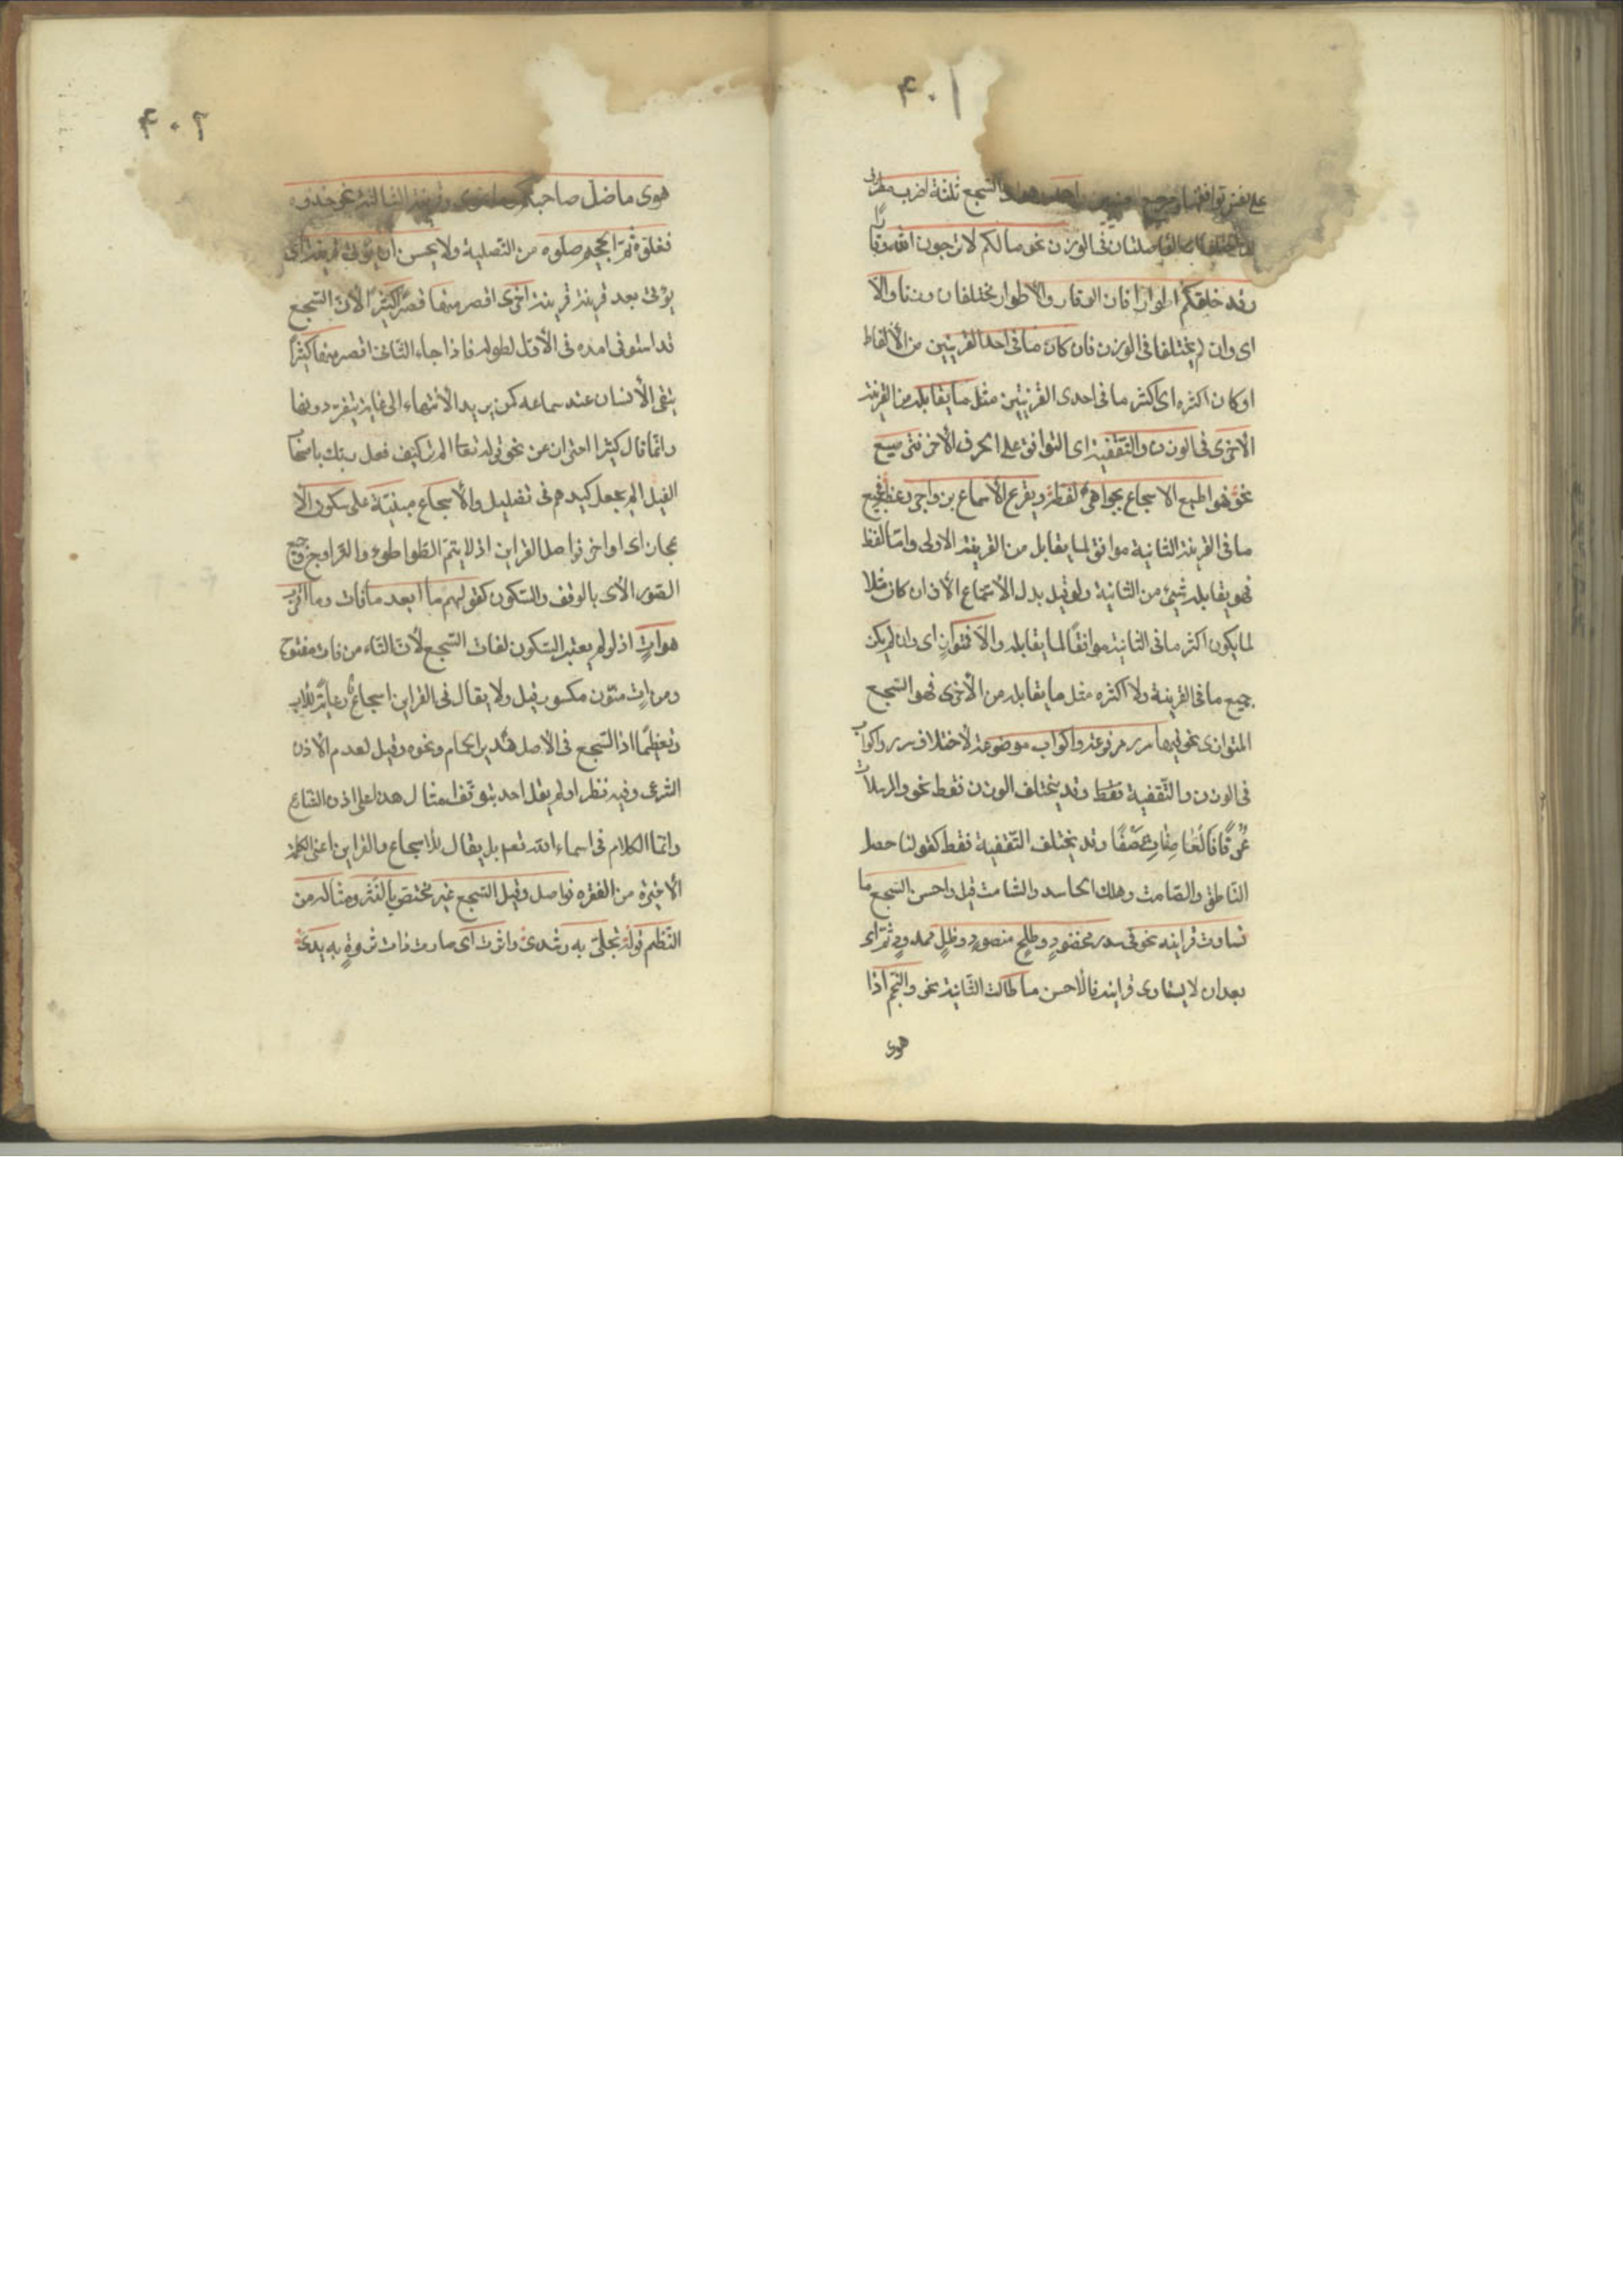 ۴۰۱
على نفس توافقهما السجع ثلثة اضرب مطرف
ان اختلفتا اى الفاصلتان فى الوزن نحو مالكم لا ترجون لله وقارا
وقد خلقكم اطوارا فان الوقار والأطوار مختلفان وزنا والا
اى وان لم يختلفا فى الوزن فان كان ما فى احد القرينتين من الألفاظ
او كان اكثره اى اكثر ما فى احدى القرينتين مثل ما يقابله من القرينة
الاخرى فى الوزن والتقفية اى التوافق على الحرف الأخر فترصيع
نحو فهو يطبع الاسجاع بجواهر لفظه ويقرع الأسماع بزواجر وعظه فجميع
ما فى القرينة الثانية موافق لما يقابل من القرينة الاولى واما لفظ
فهو يقابله شىء من الثانية ولو قيل بدل الأسماع الأذان كان مثلا
لما يكون اكثر ما فى الثانية موافقًا لما يقابله والا فمتوازٍ اى وان لم يكن
جميع ما فى القرينة ولا اكثره مثل ما يقابله من الأخرى فهو السجع
المتوازى نحو فيها سرر مرفوعة واكواب موضوعة لاختلاف سرر واكواب
فى الوزن والتقفية فقط وقد يختلف الوزن فقط نحو والمرسلات
عُرفًا فالعاصفات عصفًا وقد يختلف التقفية فقط كقولنا حصل
الناطق والصامت وهلك الحاسد والشامت قيل واحسن السجع ما
تساوت قراينه نحو فى سدر مخضودٍ وطلحٍ منضودٍ وظلٍ ممدودٍ ثم اى
بعد ان لا يتساوى قراينه فالأحسن ما طالت الثانية نحو والنجم اذا
هوى
۴۰۲
هوى ما ضل صاحبكم وما غوى وقرينة الثالثة نحو خذوه
فغلوه ثم الجحيم صلوه من التصلية ولا يحسن ان يؤتى قرينة اى
يؤتى بعد قرينة قرينة اخرى اقصر منها قصرًا كثيرًا لأن السجع
قد استوفى امده فى الأول لطوله فاذا جاء الثانى اقصر منه كثيرًا
يبقى الأنسان عند سماعه كمن يريد الأنتهاء الى غاية فيعثر دونها
وانما قال كثيرا احترازا عن نحو قوله تعالى الم تر كيف فعل ربك باصحاب
الفيل الم يجعل كيدهم فى تضليل والأسجاع مبنية على سكون الأ
عجاز اى اواخر فواصل القراين اذ لا يتم التواطؤ والتزاوج فى جميع
الصور الا بالوقف والسكون كقولهم ما ابعد ما فات وما اقرب ما
هو اتٍ اذ لو لم يعتبر السكون لفات السجع لأن التاء من فات مفتوح
ومن اتٍ منون مكسور قيل ولا يقال فى القران اسجاع رعاية للادب
وتعظيمًا اذ السجع فى الاصل هدير الحمام ونحوه وقيل لعدم الاذن
الشرعى وفيه نظر اذ لم يقل احد بتوقف امثال هذا على اذن الشارع
وانما الكلام فى اسماء الله تعم بل يقال للأسجاع فى القران اعنى الكلمة
الأخيرة من الفقره فواصل وقيل السجع غير مختص بالنثر ومثاله من
النظم قوله تجلى به رشدى واثرت اى صارت ذات ثروةٍ به يدى